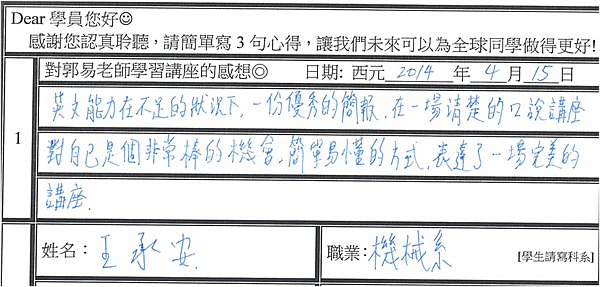 Dear 學員您好☺
感謝您認真聆聽，請簡單寫 3 句心得，讓我們未來可以為全球同學做得更好!
對郭易老師學習講座的感想◎ 日期: 西元 2014 年 4 月 15 日
1
英文能力在不足的狀況下,一份優秀的簡報,在一場清楚的口說講座
對自己是個非常棒的機會,簡單易懂的方式,表達了一場完美的
講座.
姓名： 王承安. 職業：機械系 [學生請寫科系]